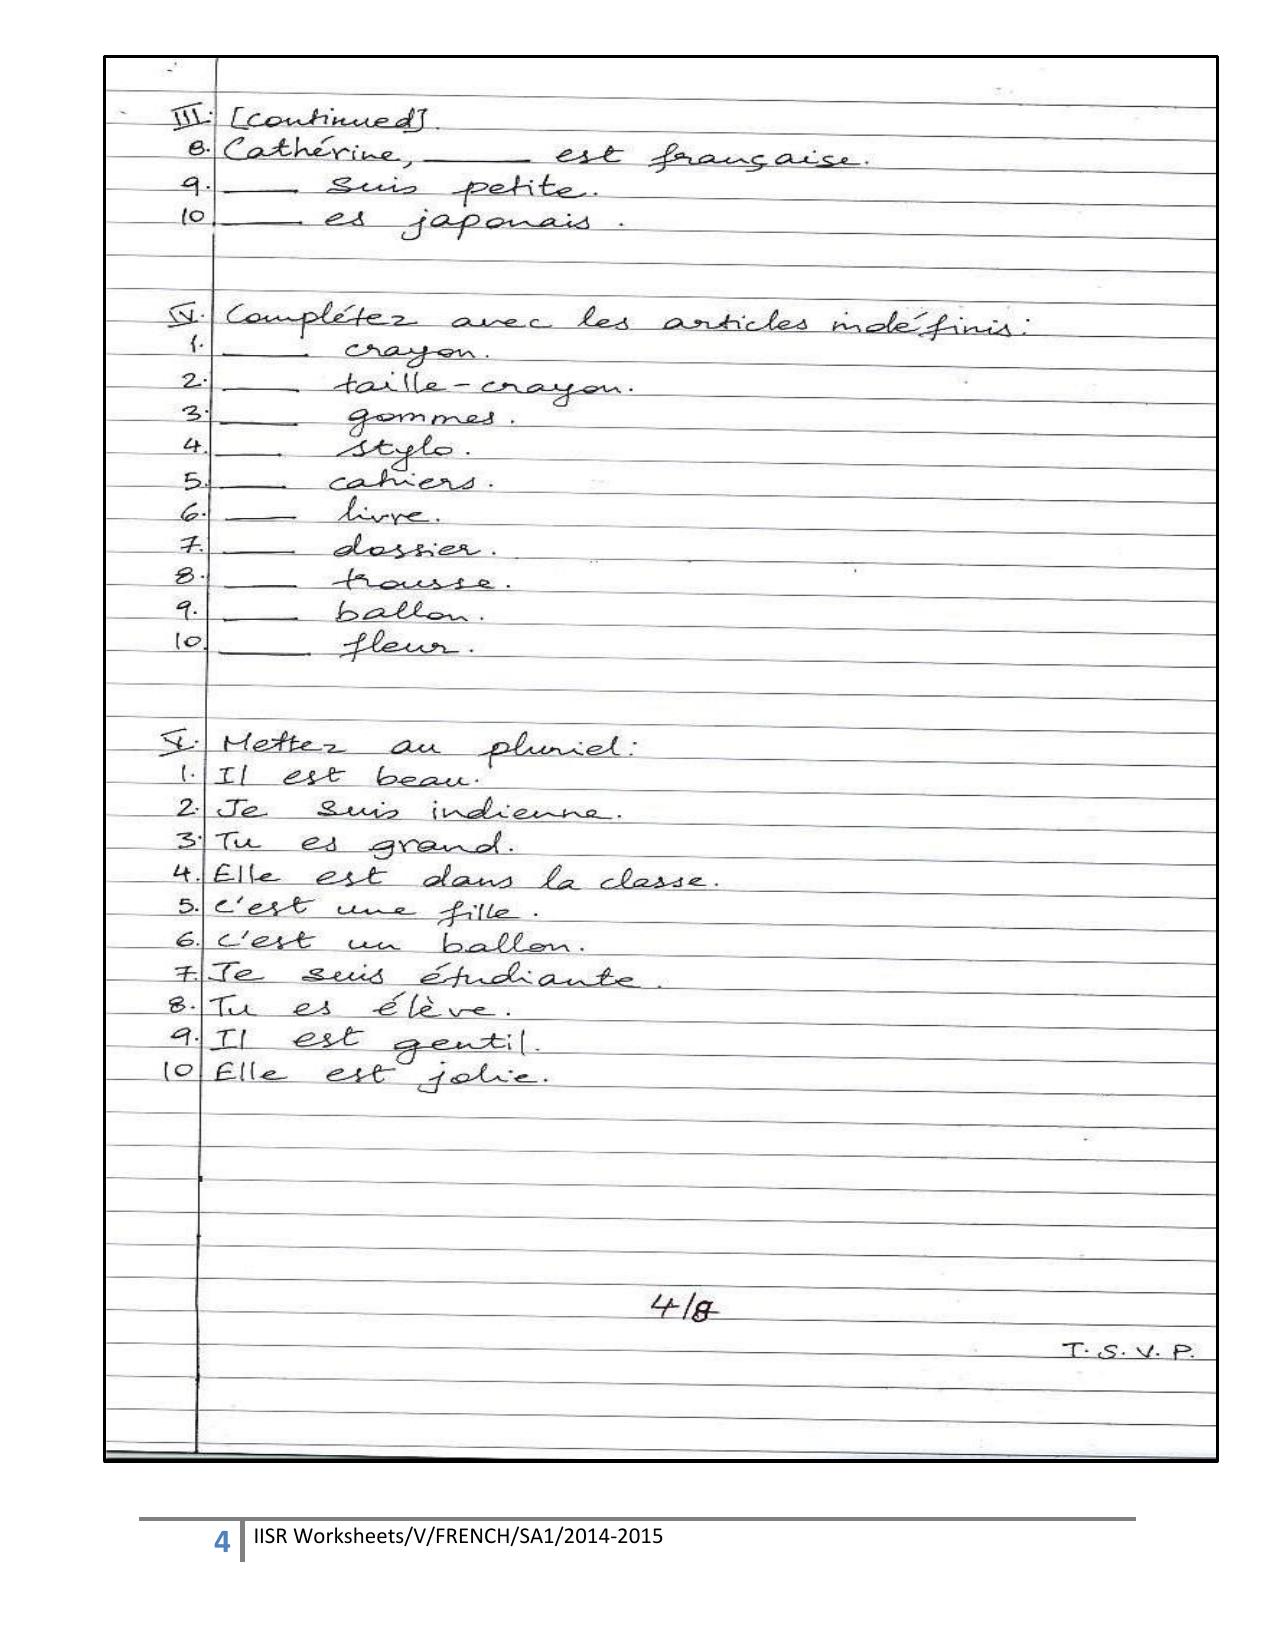 III. [continued]
8. Cathérine, ____ est française.
9. ____ suis petite.
10 ____ es japonais.
IV. Complétez avec les articles indéfinis:
1. ____ crayon.
2. ____ taille-crayon.
3. ____ gommes.
4. ____ stylo.
5. ____ cahiers.
6. ____ livre.
7. ____ dossier.
8. ____ trousse.
9. ____ ballon.
10. ____ fleur.
V. Mettez au pluriel:
1. Il est beau.
2. Je suis indienne.
3. Tu es grand.
4. Elle est dans la classe.
5. C'est une fille.
6. C'est un ballon.
7. Je suis étudiante.
8. Tu es élève.
9. Il est gentil.
10 Elle est jolie.
4/8
T.S.V.P.
4 IISR Worksheets/V/FRENCH/SA1/2014-2015